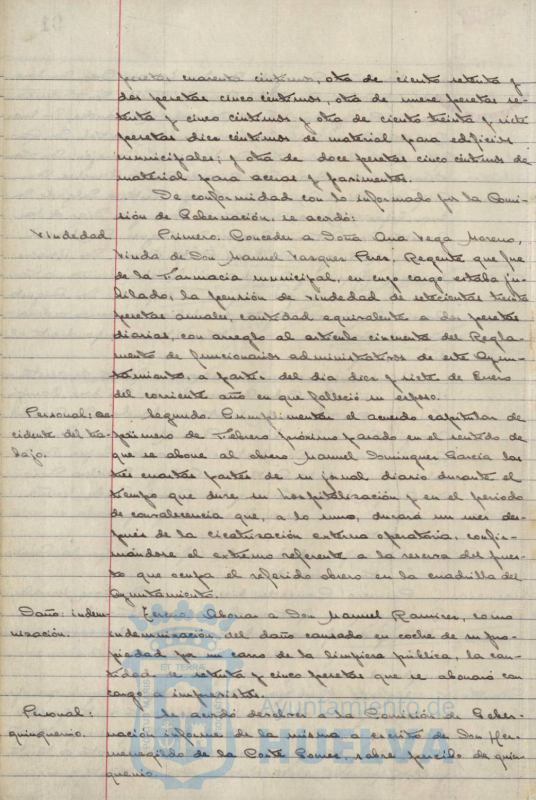 pesetas cuarenta céntimos, otra de ciento setenta y
dos pesetas cinco céntimos, otra de nueve pesetas se-
tenta y cinco céntimos y otra de ciento treinta y siete
pesetas diez céntimos de material para edificios
municipales; y otra de doce pesetas cinco céntimos de
material para aceras y pavimentos.
De conformidad con lo informado por la Comi-
sión de Gobernación, se acordó:
Viudedad. Primero. Conceder a Doña Ana Vega Moreno,
viuda de Don Manuel Vazquez Perez, Regente que fue
de la Farmacia municipal, en cuyo cargo estaba ju-
bilado, la pensión de viudedad de setecientas treinta
pesetas anuales, cantidad equivalente a dos pesetas
diarias, con arreglo al artículo cincuenta del Regla-
mento de funcionarios administrativos de este Ayun-
tamiento, a partir del dia diez y siete de Enero
del corriente año en que falleció su esposo.
Personal: ac- Segundo. Cumplimentar el acuerdo capitular de
cidente del tra- primero de Febrero próximo pasado en el sentido de
bajo. que se abone al obrero Manuel Dominguez García las
tres cuartas partes de su jornal diario durante el
tiempo que dure su hospitalización y en el periodo
de convalecencia que, a lo sumo, durará un mes des-
pués de la cicatrización externa operatoria, confir-
mándose el extremo referente a la reserva del pues-
to que ocupa el referido obrero en la cuadrilla del
Ayuntamiento.
Daño: indem- Tercero. Abonar a Don Manuel Ramirez, como
nización. indemnización del daño causado en coche de su pro-
piedad por un carro de la limpieza pública, la can-
tidad de setenta y cinco pesetas que se abonará con
cargo a imprevistos.
Personal: Se acordó devolver a la Comisión de Gober-
quinquenio. nación informe de la misma a escrito de Don Her-
menegildo de la Corte Gomez, sobre percibo de quin-
quenio.
ET TERRAE
Ayuntamiento de
HUELVA